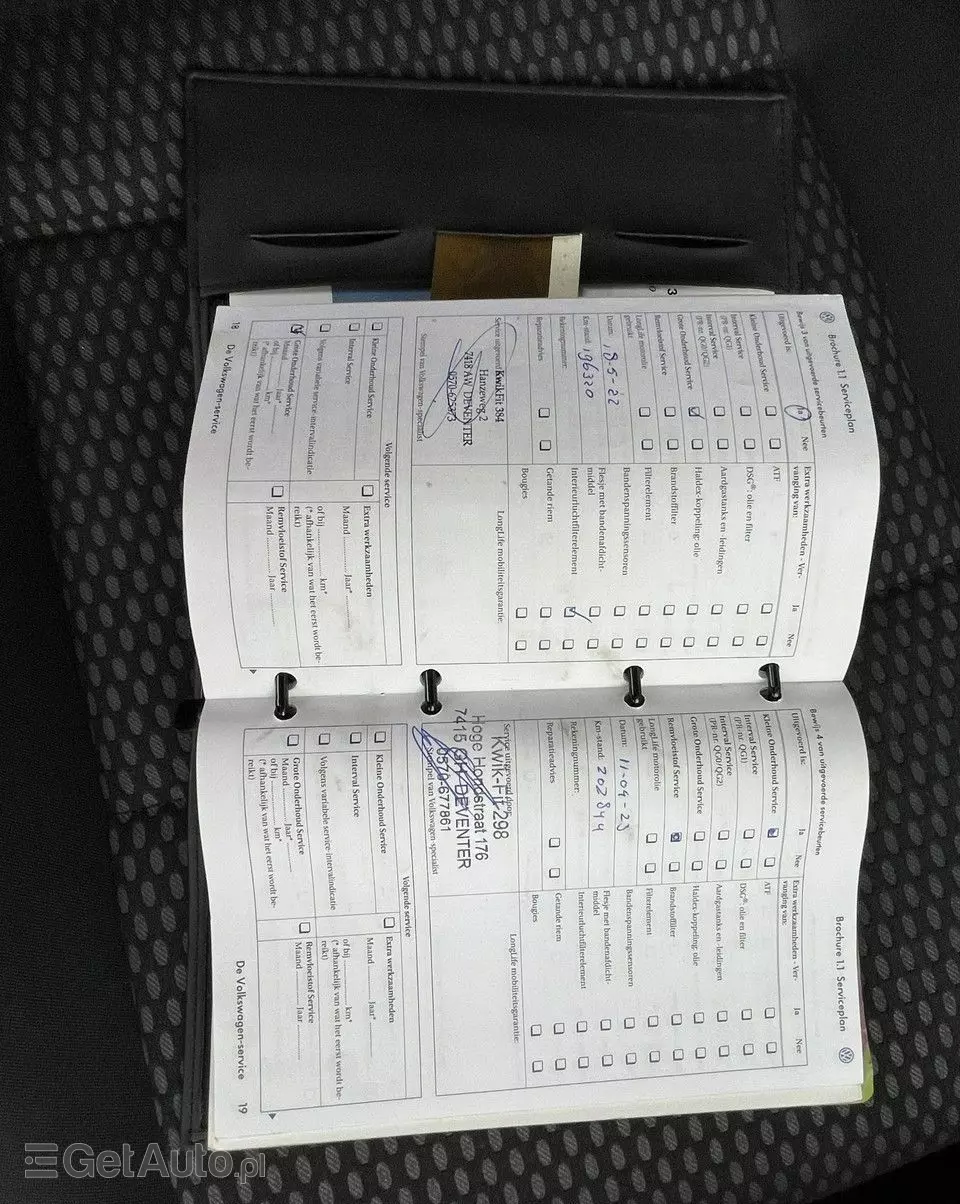 Brochure 1.1 Serviceplan
Bewijs 3 van uitgevoerde servicebeurten
Uitgevoerd is:
Ja
Nee
Kleine Onderhoud Service
Interval Service
(PR-nr. QG1)
Interval Service
(PR-nr. QG0/QG2)
Grote Onderhoud Service
Remvloeistof Service
LongLife motorolie
gebruikt
Datum: 18-5-22
Km-stand: 196320
Rekeningnummer:
Reparatieadvies
Service uitgevoerd
KwikFit 384
Hanzeweg 2
7418 AW DEVENTER
0570-625373
Stempel van Volkswagen-specialist
Extra werkzaamheden - Ver-
vanging van:
Ja
Nee
ATF
DSG®: olie en filter
Aardgastanks en -leidingen
Haldex-koppeling: olie
Brandstoffilter
Filterelement
Bandenspanningssensoren
Flesje met bandenafdicht-
middel
Interieurluchtfilterelement
Getande riem
Bougies
LongLife mobiliteitsgarantie:
Volgende service
Kleine Onderhoud Service
Interval Service
Volgens variabele service-intervalindicatie
Grote Onderhoud Service
Maand ............ Jaar* ............
of bij ............ km*
(* afhankelijk van wat het eerst wordt be-
reikt)
Extra werkzaamheden
Maand ............ Jaar* ............
of bij ............ km*
(* afhankelijk van wat het eerst wordt be-
reikt)
Remvloeistof Service
Maand ............ Jaar ............
18
De Volkswagen-service
Brochure 1.1 Serviceplan
Bewijs 4 van uitgevoerde servicebeurten
Uitgevoerd is:
Ja
Nee
Kleine Onderhoud Service
Interval Service
(PR-nr. QG1)
Interval Service
(PR-nr. QG0/QG2)
Grote Onderhoud Service
Remvloeistof Service
LongLife motorolie
gebruikt
Datum: 11-04-23
Km-stand: 202844
Rekeningnummer:
Reparatieadvies
Service uitgevoerd door:
KWIK-FIT 298
Hoge Hondstraat 176
7415 DEVENTER
0570-677861
Stempel van Volkswagen-specialist
Extra werkzaamheden - Ver-
vanging van:
Ja
Nee
ATF
DSG®: olie en filter
Aardgastanks en -leidingen
Haldex-koppeling: olie
Brandstoffilter
Filterelement
Bandenspanningssensoren
Flesje met bandenafdicht-
middel
Interieurluchtfilterelement
Getande riem
Bougies
LongLife mobiliteitsgarantie:
Volgende service
Kleine Onderhoud Service
Interval Service
Volgens variabele service-intervalindicatie
Grote Onderhoud Service
Maand ............ Jaar* ............
of bij ............ km*
(* afhankelijk van wat het eerst wordt be-
reikt)
Extra werkzaamheden
Maand ............ Jaar* ............
of bij ............ km*
(* afhankelijk van wat het eerst wordt be-
reikt)
Remvloeistof Service
Maand ............ Jaar ............
De Volkswagen-service
19
GetAuto.pl